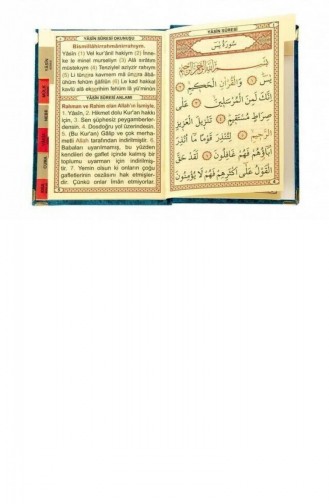 YÂSİN SÛRESİ OKUNUŞU
Bismillâhirrahmânirrahıym.
Yâsîn (1) Vel kur'ânil hakiym (2) İnne-
ke le minel murseliyn (3) Alâ sırâtın
müstekıym (4) Tenziylel aziyzir rahıym
(5) Li tünzira kavmen mâ ünzira âbâ-
ühüm fehüm ğâfilûn (6) Le kad hakkal
kavlü alâ ekserihim fehüm lâ yü'minûn
YÂSİN SÛRESİ ANLAMI
Rahman ve Rahim olan Allah'ın ismiyle,
1. Yâsîn, 2. Hikmet dolu Kur'an hakkı
için, 3. Sen şüphesiz peygamberler-
densin. 4. Dosdoğru yol üzerindesin.
5. (Bu Kur'an) Gâlip ve çok merha-
metli Allah tarafından indirilmiştir. 6.
Babaları uyarılmamış, bu yüzden
kendileri de gaflet içinde kalmış bir
toplumu uyarman için indirilmiş-
tir. 7. Yemin olsun ki onların çoğu
gafletlerinin cezâsını hak etmişler-
dir. Çünkü onlar îmân etmiyorlar.
YÂSİN SÛRESİ
سُورَةُ يٰسٓ
بِسْمِ اللّٰهِ الرَّحْمٰنِ الرَّحِيمِ
يٰسٓ ۝ وَالْقُرْاٰنِ الْحَكِيمِ ۝
اِنَّكَ لَمِنَ الْمُرْسَلِينَ ۝ عَلٰى
صِرَاطٍ مُسْتَقِيمٍ ۝ تَنْزِيلَ الْعَزِيزِ
الرَّحِيمِ ۝ لِتُنْذِرَ قَوْمًا مَٓا اُنْذِرَ
اٰبَٓاؤُهُمْ فَهُمْ غَافِلُونَ ۝ لَقَدْ حَقَّ
الْقَوْلُ عَلٰٓى اَكْثَرِهِمْ فَهُمْ لَا يُؤْمِنُونَ